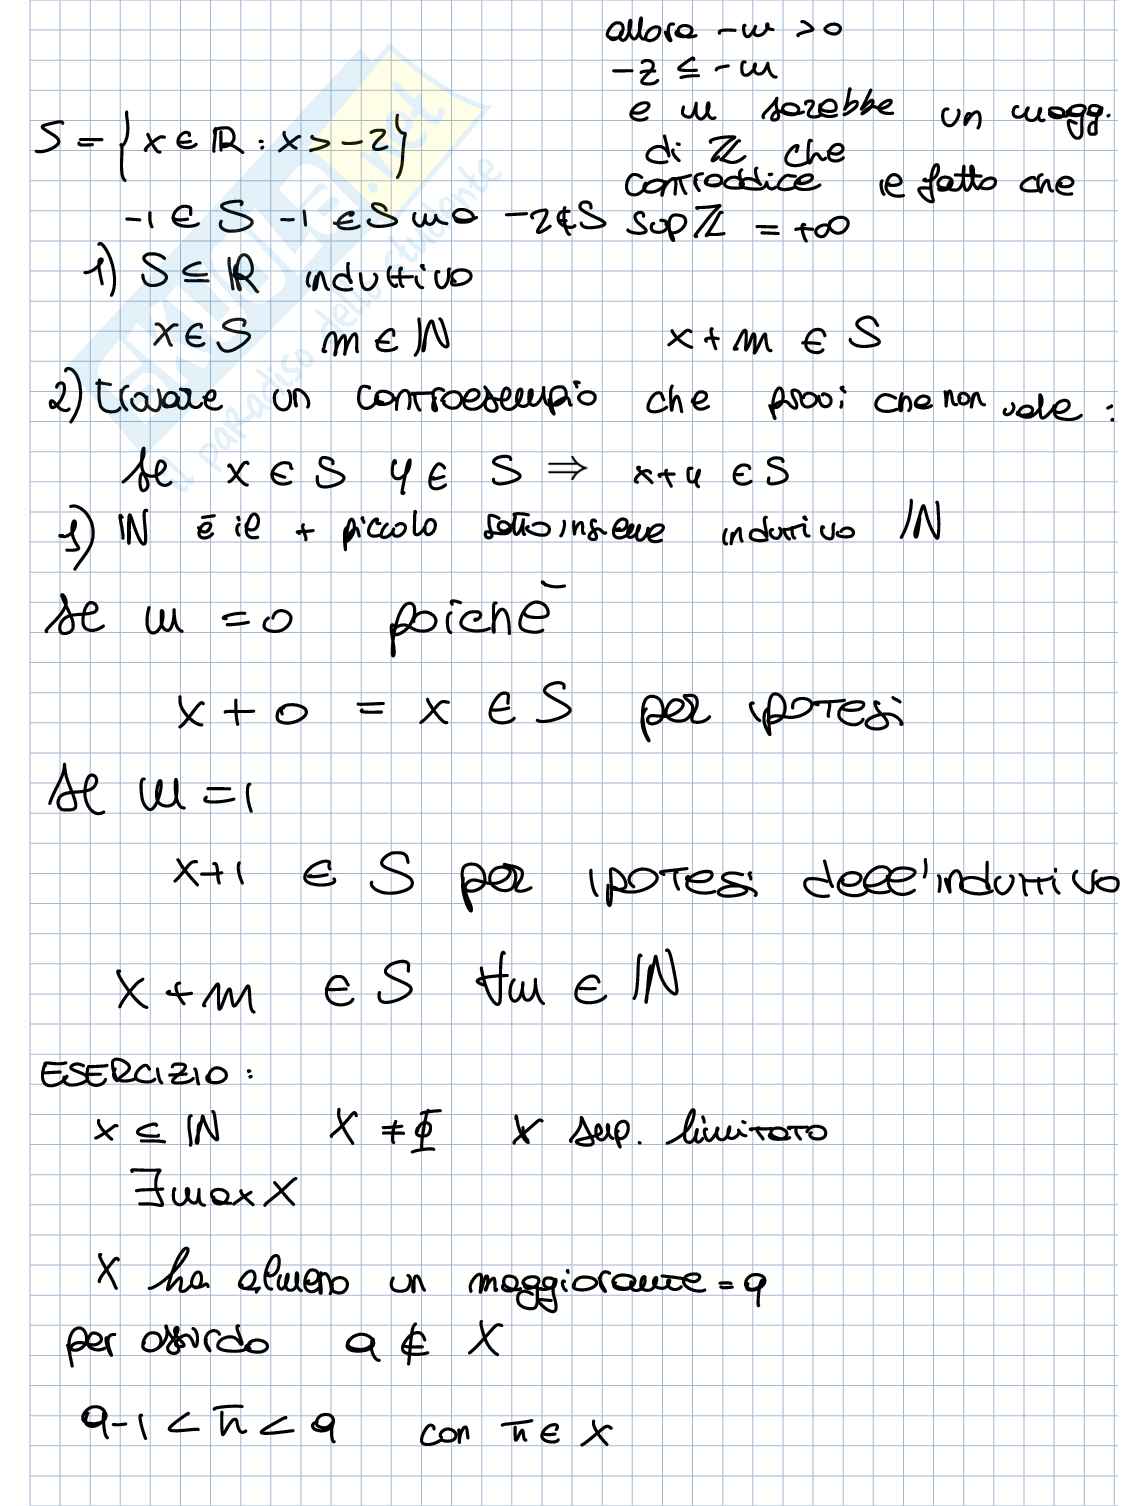 allora -m > 0
-z ≤ -m
e m sarebbe un magg.
di ℤ che
contraddice il fatto che
sup ℤ = +∞
S = { x ∈ ℝ : x > -2 }
-1 ∈ S -1 ∈ S ma -2 ∉ S
1) S ⊆ ℝ induttivo
x ∈ S m ∈ ℕ x + m ∈ S
2) trovare un controesempio che provi che non vale :
se x ∈ S y ∈ S ⇒ x+y ∈ S
1) ℕ è il + piccolo sottoinsieme induttivo ℕ
se m = 0 poichè
x + 0 = x ∈ S per ipotesi
se m = 1
x+1 ∈ S per ipotesi dell'induttivo
x + m ∈ S ∀m ∈ ℕ
ESERCIZIO :
x ⊆ ℕ X ≠ ∅ X sup. limitato
∃ max X
X ha almeno un maggiorante = a
per assurdo a ∉ X
a-1 < n̄ < a con n̄ ∈ X
SKUOLA.net
il paradiso dello studente